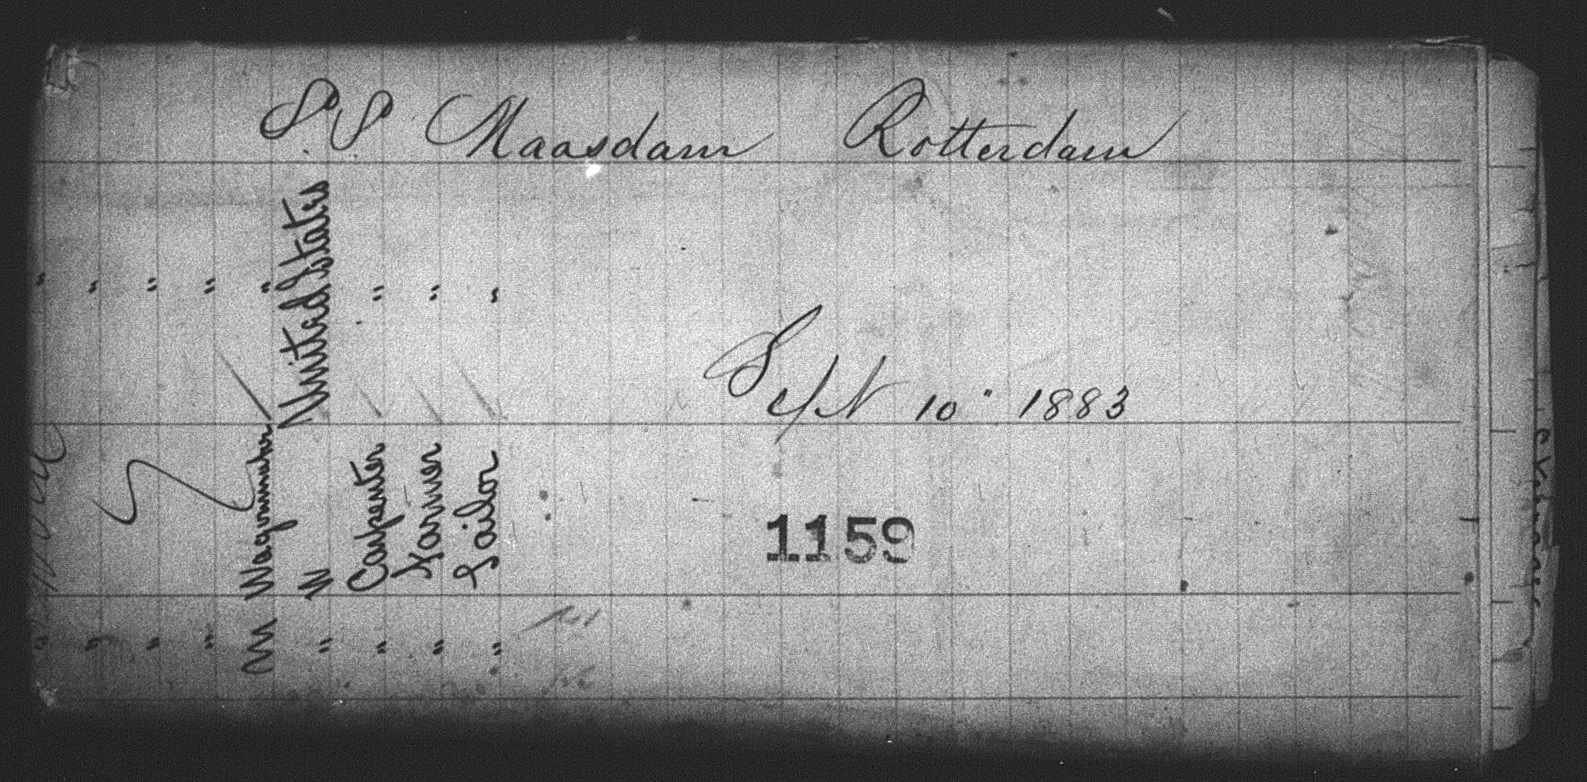 SS Maasdam Rotterdam
Sept 10" 1883
1159
" " " " " United States " " "
Wagonmaker W Carpenter Farmer Sailor
" " " " M " " " "